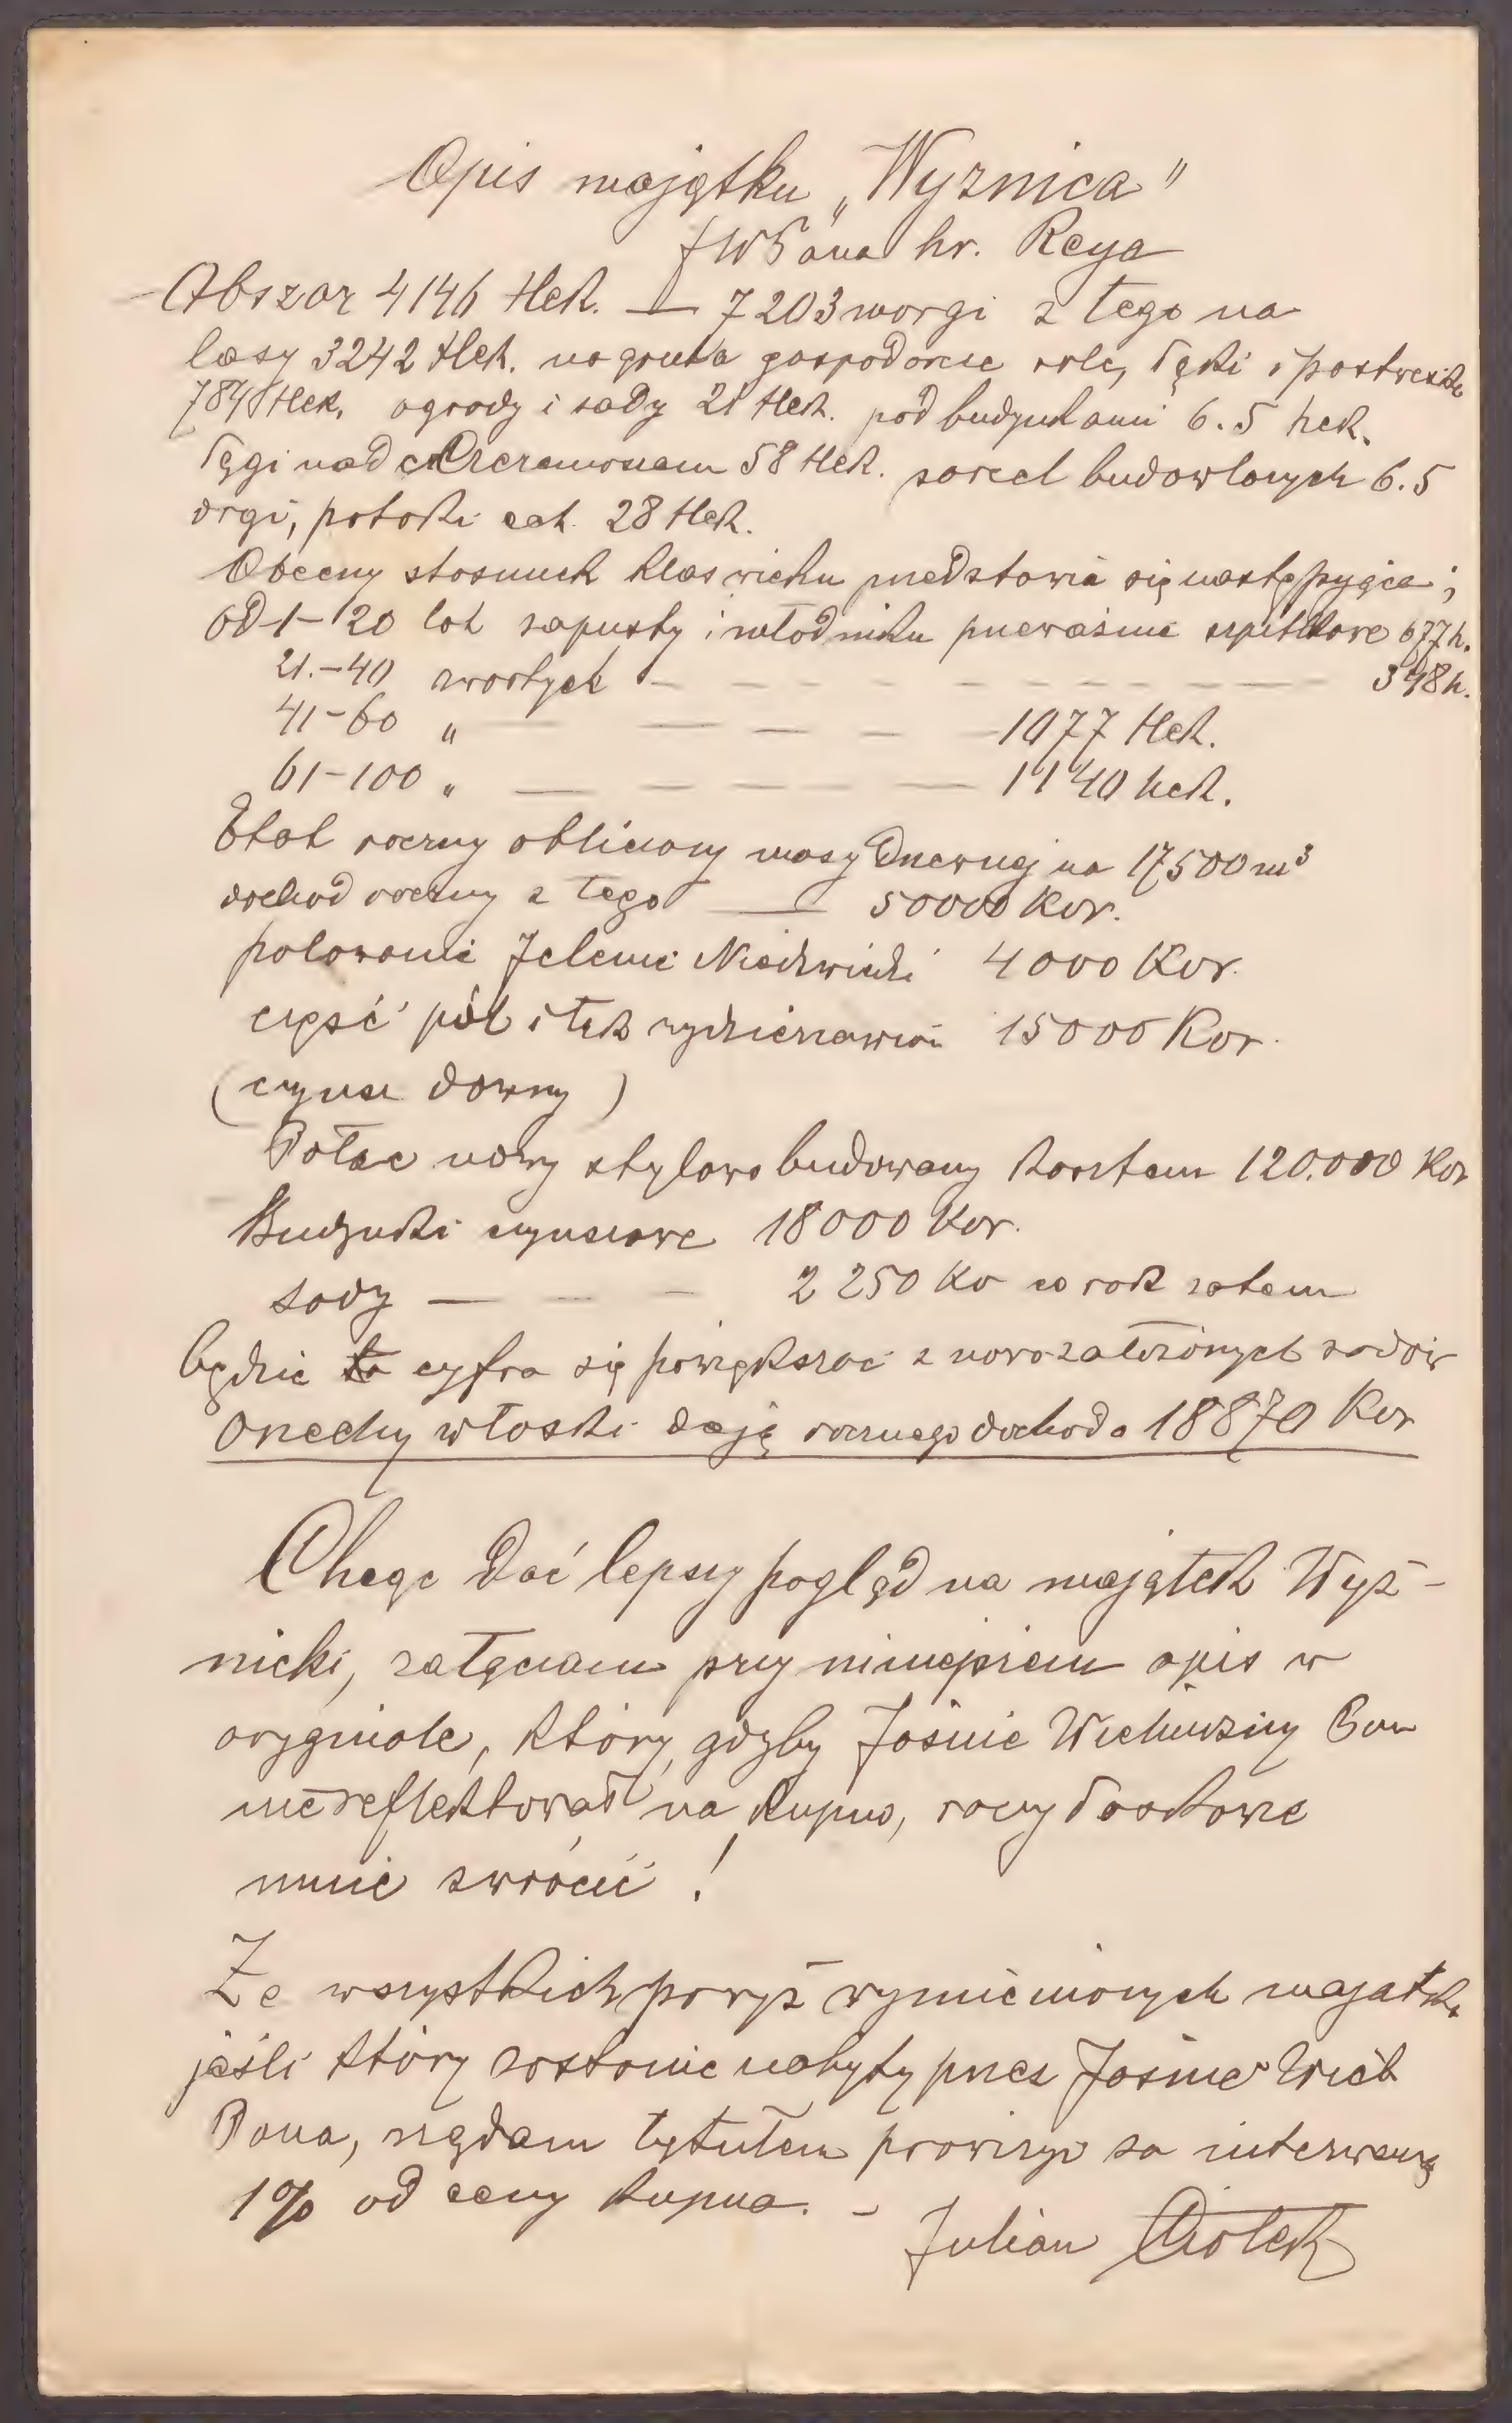 Opis majątku „Wyznica"
JWPana hr. Reya
Obszar 4146 Hek. — 7203 morgi z tego na
lasy 3242 Hek. na grunta gospodarcze role, łąki i pastwiska
784 Hek. ogrody i sady 21 Hek. pod budynkami 6.5 hek.
łęgi nad Czeremoszem 58 Hek. parcel budowlanych 6.5
drgi, potoki ect. 28 Hek.
Obecny stosunek klas wieku predstawia się następująco;
od 1–20 lat zapusty i młodniku przeważnie szpilkowe 677 h.
21.–40 zwartych — — — — — — — 348 h.
41–60 „ — — — — — 1077 Hek.
61–100 „ — — — — — 1140 hek.
Etat roczny obliczony masy drzewnej na 17500 m³
dochod roczny z tego — 50000 Kor.
polowanie Jelenie Niedzwiedzi 4000 Kor.
część pól i łąk wydzierżawion 15000 Kor.
(czynsz dawny)
Pałac nowy stylowo budowany kosztem 120.000 Kor
Budynki czynszowe 18000 Kor.
sady — — — 2250 Ko co rok zatem
będzie ta cyfra się powiększać z nowozałożonych sadów
Orzechy włoski dają rocznego dochodo 18870 Kor
Chcąc dać lepszy pogląd na majątek Wyż-
nicki, załączam przy niniejszem opis w
oryginale, który gdyby Jaśnie Wielmożny Pan
nie reflektował na kupno, raczy łaskawie
mnie zwrócić !
Ze wszystkich powyż wymienionych majatku
jeśli który zostanie nabyty przez Jaśnie Wiel
Pana, rządam tytułem prowizyi za interwencyę
1% od ceny kupna. –
Julian